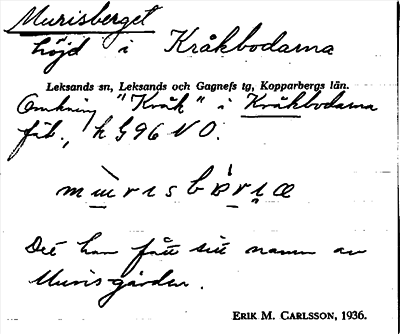 Murisberget
höjd i Kråkbodarna
Leksands sn, Leksands och Gagnefs tg, Kopparbergs län.
Omkring "Kråk" i Kråkbodarna
fäb., h 596 NO.
Det har fått sitt namn av
Muris-gården.
ERIK M. CARLSSON, 1936.